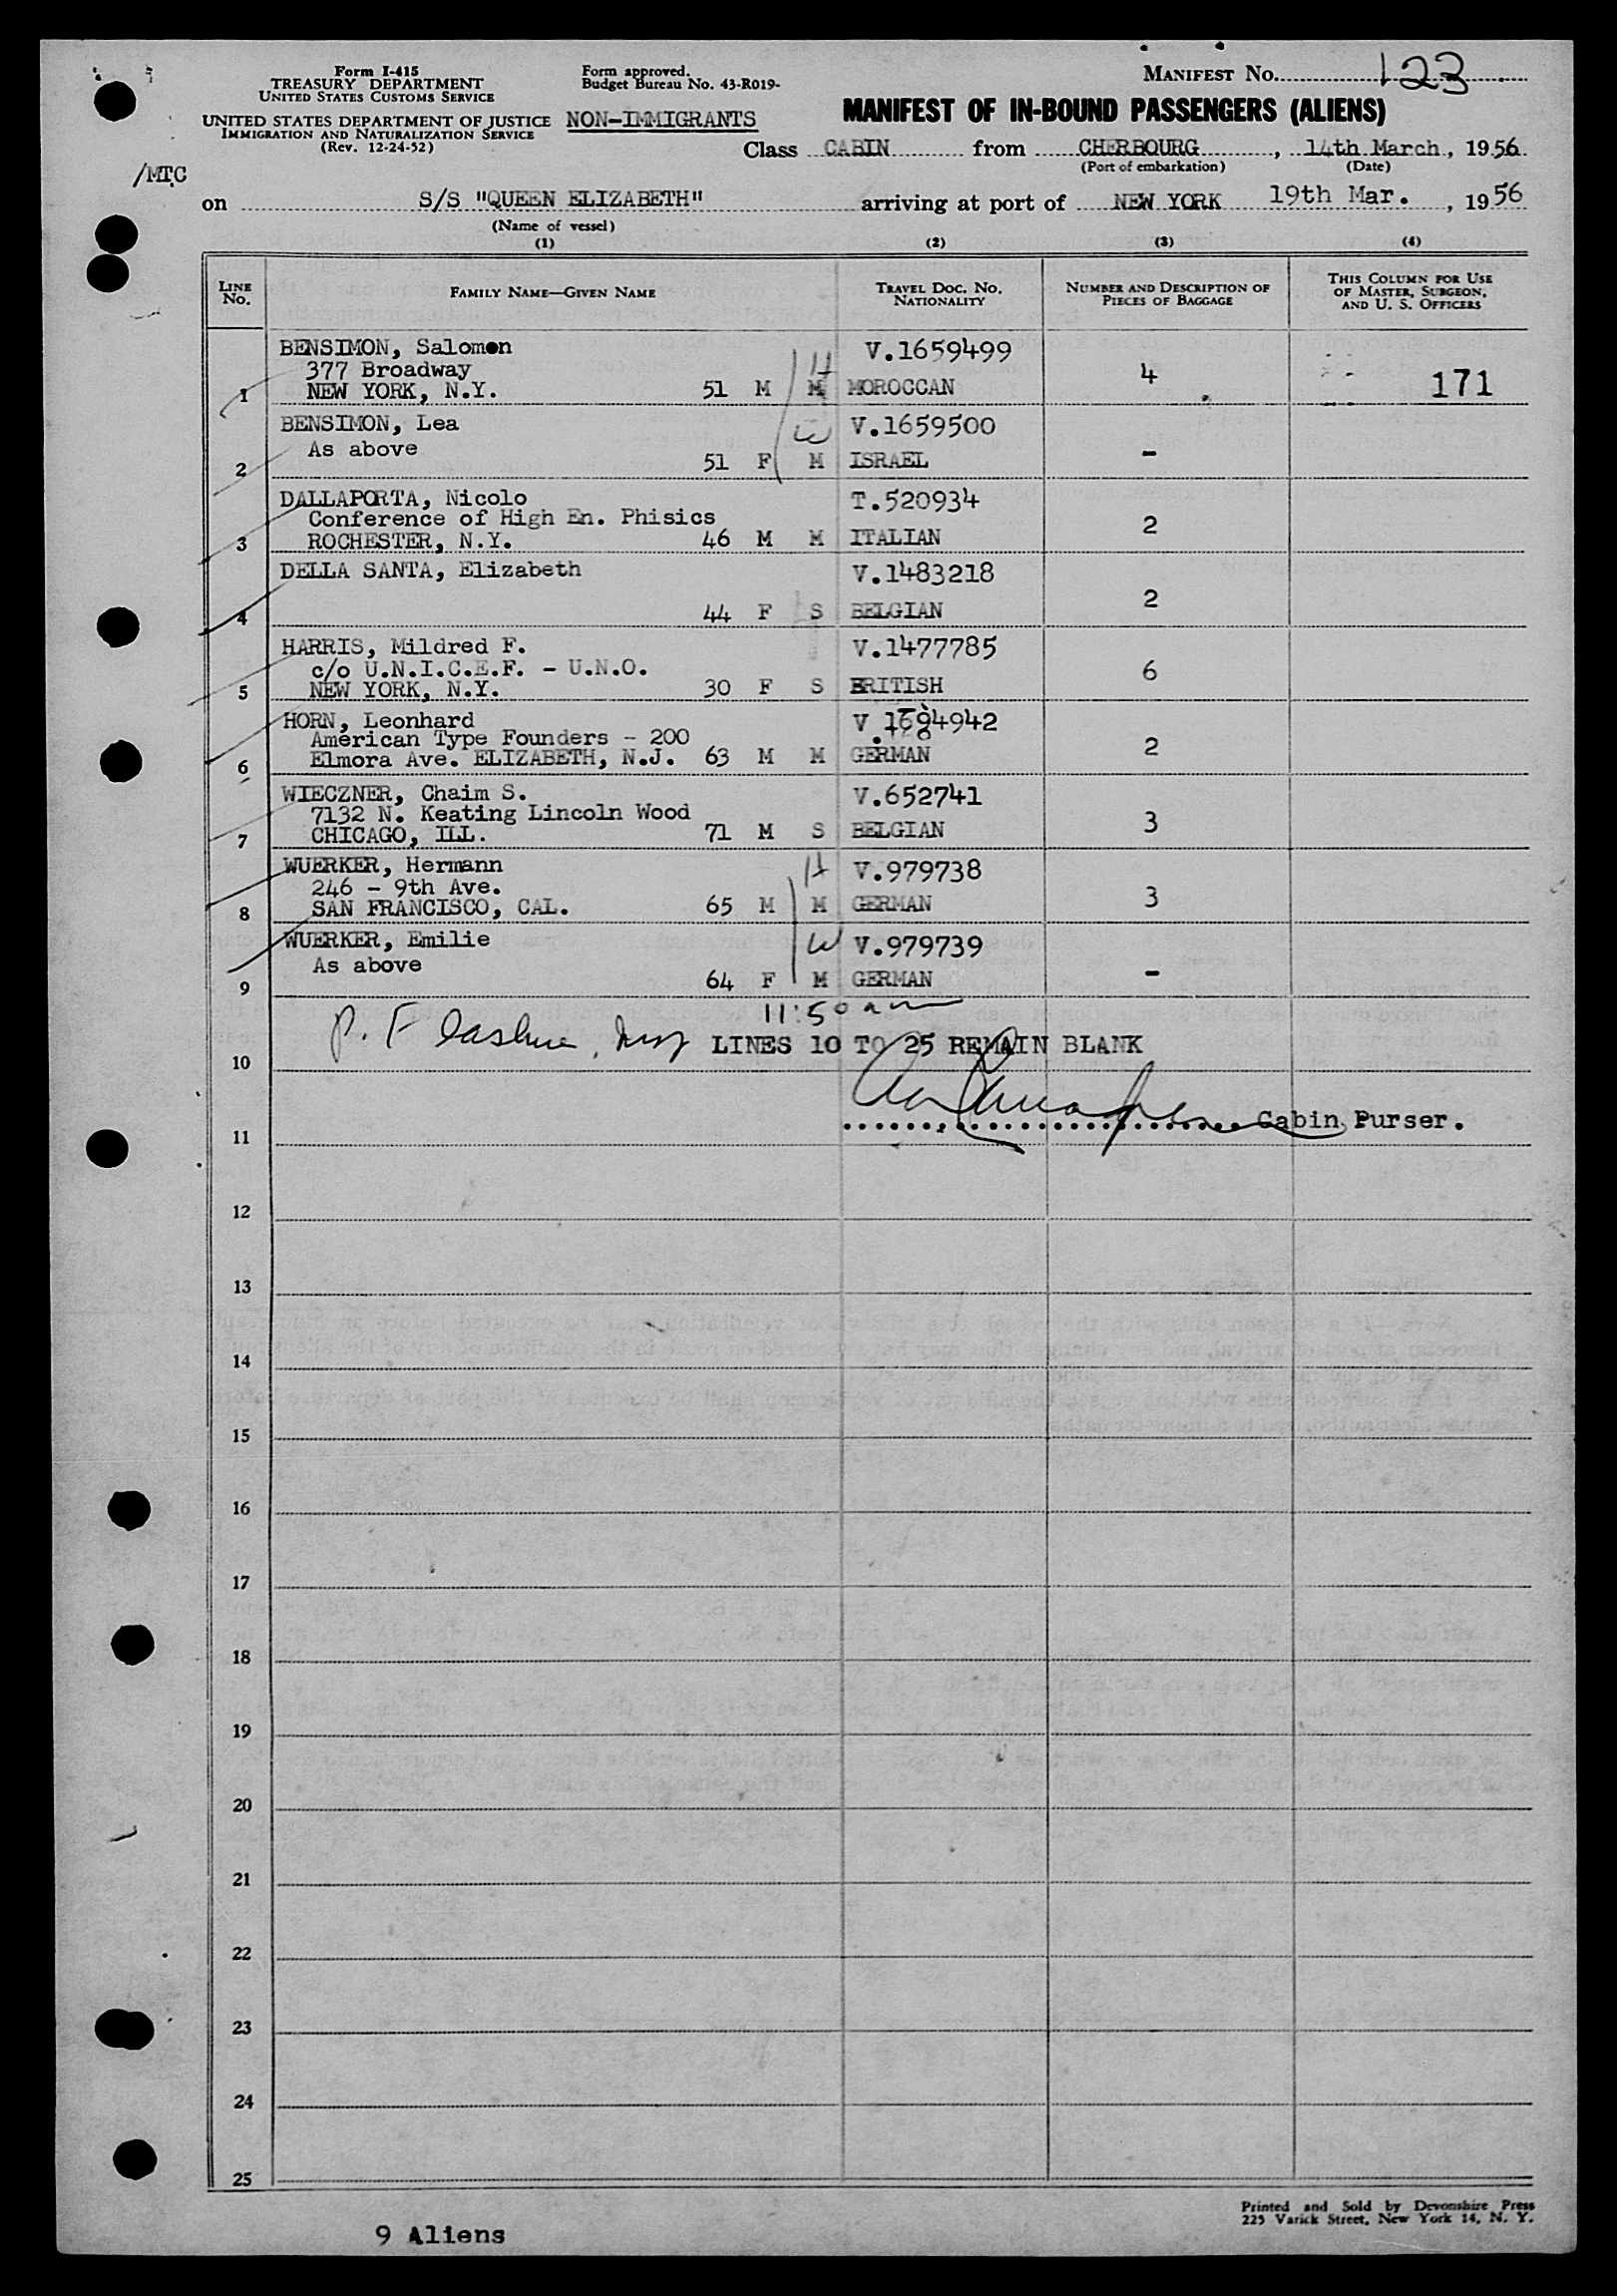 Form I-415
TREASURY DEPARTMENT
UNITED STATES CUSTOMS SERVICE
UNITED STATES DEPARTMENT OF JUSTICE
IMMIGRATION AND NATURALIZATION SERVICE
(Rev. 12-24-52)
Form approved.
Budget Bureau No. 43-R019-
NON-IMMIGRANTS
MANIFEST NO. 123
MANIFEST OF IN-BOUND PASSENGERS (ALIENS)
Class CABIN from CHERBOURG, 14th March, 1956
(Port of embarkation) (Date)
/MTC
on S/S "QUEEN ELIZABETH" arriving at port of NEW YORK 19th Mar., 1956
(Name of vessel)
(1) (2) (3) (4)
LINE No. FAMILY NAME—GIVEN NAME TRAVEL DOC. NO. NATIONALITY NUMBER AND DESCRIPTION OF PIECES OF BAGGAGE THIS COLUMN FOR USE OF MASTER, SURGEON, AND U. S. OFFICERS
BENSIMON, Salomon V.1659499
377 Broadway H 4
1 NEW YORK, N.Y. 51 M M MOROCCAN 171
BENSIMON, Lea W V.1659500
As above -
2 51 F M ISRAEL
DALLAPORTA, Nicolo T.520934
Conference of High En. Phisics 2
3 ROCHESTER, N.Y. 46 M M ITALIAN
DELLA SANTA, Elizabeth V.1483218
2
4 44 F S BELGIAN
HARRIS, Mildred F. V.1477785
c/o U.N.I.C.E.F. - U.N.O. 6
5 NEW YORK, N.Y. 30 F S BRITISH
HORN, Leonhard
American Type Founders - 200 2
6 Elmora Ave. ELIZABETH, N.J. 63 M M GERMAN
WIECZNER, Chaim S. V.652741
7132 N. Keating Lincoln Wood 3
7 CHICAGO, ILL. 71 M S BELGIAN
WUERKER, Hermann H V.979738
246 - 9th Ave. 3
8 SAN FRANCISCO, CAL. 65 M M GERMAN
WUERKER, Emilie W V.979739
As above -
9 64 F M GERMAN
11:50 am
10 LINES 10 TO 25 REMAIN BLANK
11 Cabin Purser.
12
13
14
15
16
17
18
19
20
21
22
23
24
25
Printed and Sold by Devonshire Press
225 Varick Street, New York 14, N. Y.
9 Aliens